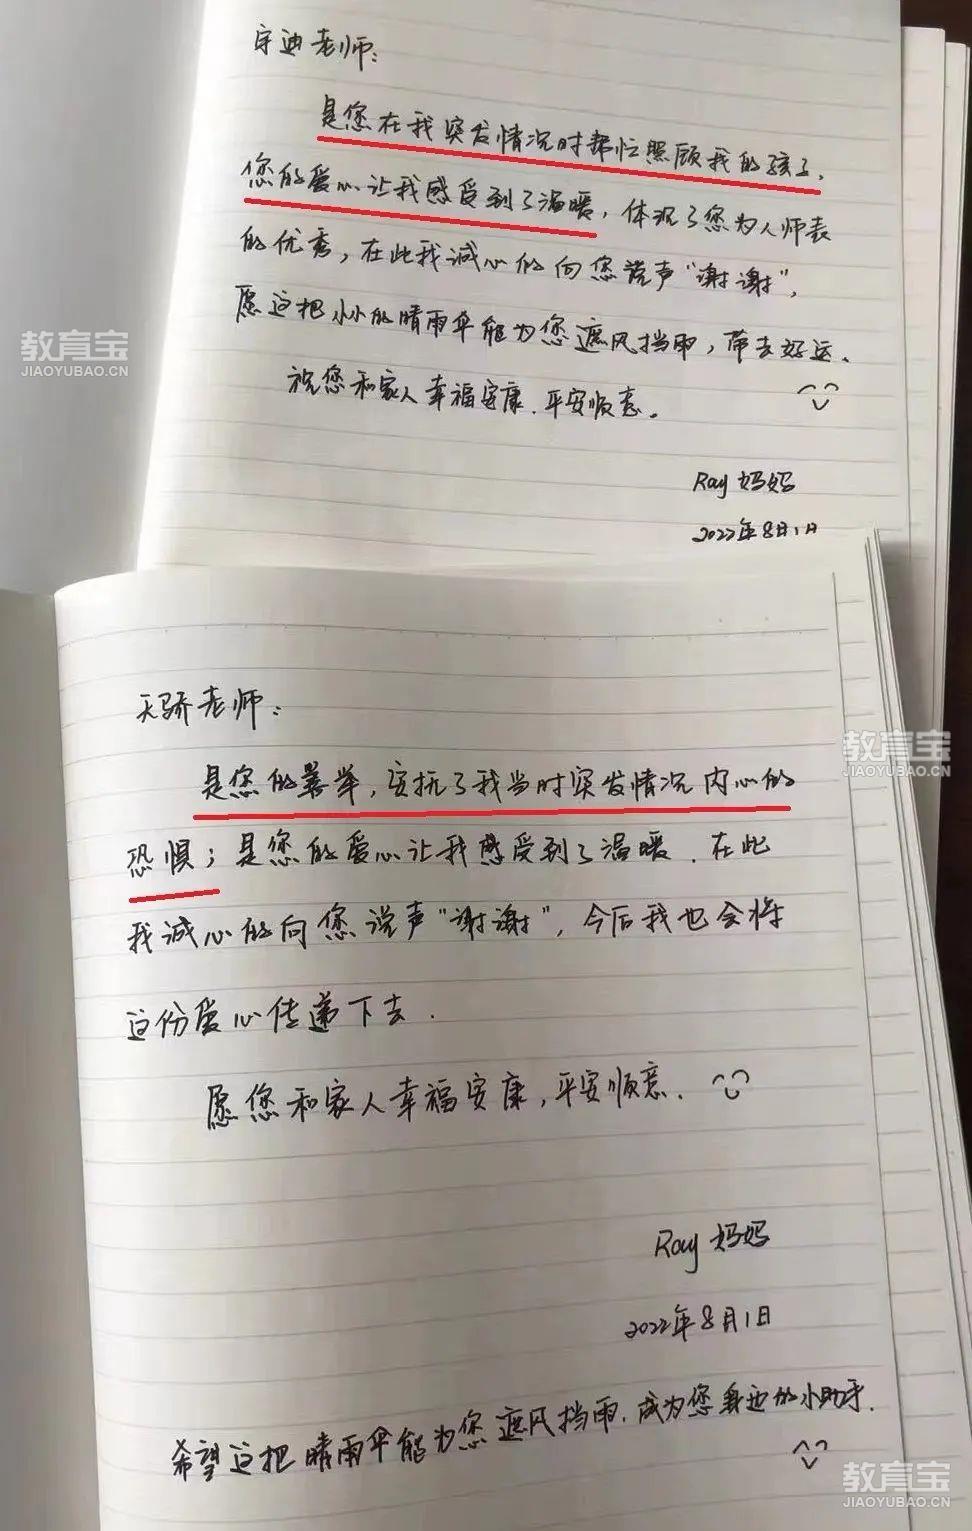 宇迪老师:
是您在我突发情况时帮忙照顾我的孩子,
您的爱心让我感受到了温暖,体现了您为人师表
的优秀,在此我诚心的向您说声“谢谢”,
愿这把小小的晴雨伞能为您遮风挡雨,带去好运.
祝您和家人幸福安康.平安顺意。
Ray 妈妈
2022年8月1日
天骄老师:
是您的善举,安抚了我当时突发情况内心的
恐惧;是您的爱心让我感受到了温暖.在此
我诚心的向您说声“谢谢”,今后我也会将
这份爱心传递下去.
愿您和家人幸福安康,平安顺意.
Ray 妈妈
2022年8月1日
希望这把晴雨伞能为您遮风挡雨.成为您身边的小助手.
教育宝
JIAOYUBAO.CN
教育宝
JIAOYUBAO.CN
教育宝
JIAOYUBAO.CN